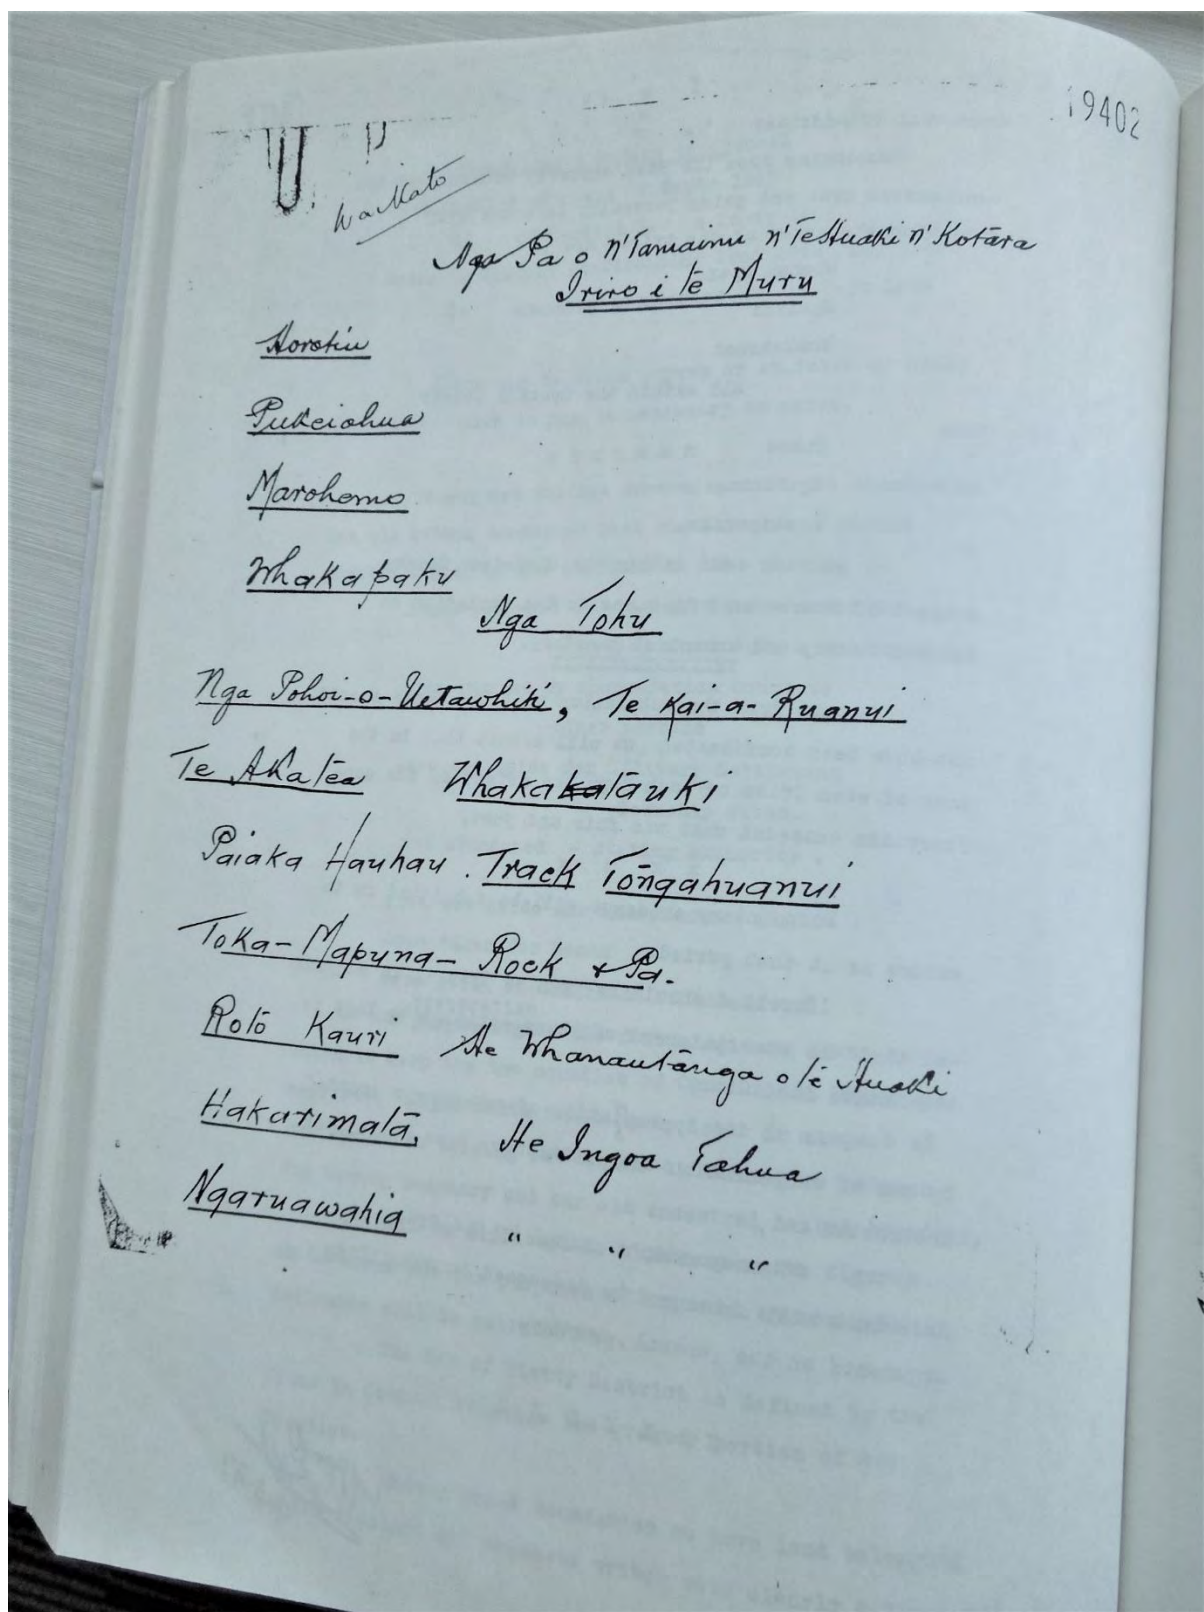 19402
Waikato
Nga Pa o N'Tamainu N'Te Huaki N'Kotāra
I riro i te Muru
Horotiu
Pukeiahua
Marohemo
Whakapaku
Nga Tohu
Nga Pohoi-o-Uetawhiti, Te Kai-a-Ruanui
Te Akatea Whakakatauki
Paiaka Hauhau. Track Tongahuanui
Toka-Mapuna-Rock & Pa.
Roto Kauri He Whanautanga o te Huaki
Hakarimata, He Ingoa Tahua
Ngaruawahia " " "